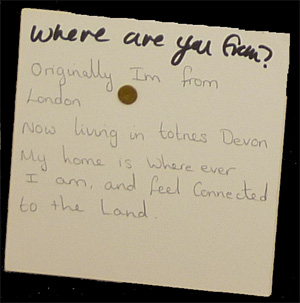 Where are you from?
Originally Im from
London
Now living in totnes Devon
My home is where ever
I am, and feel Connected
to the Land.